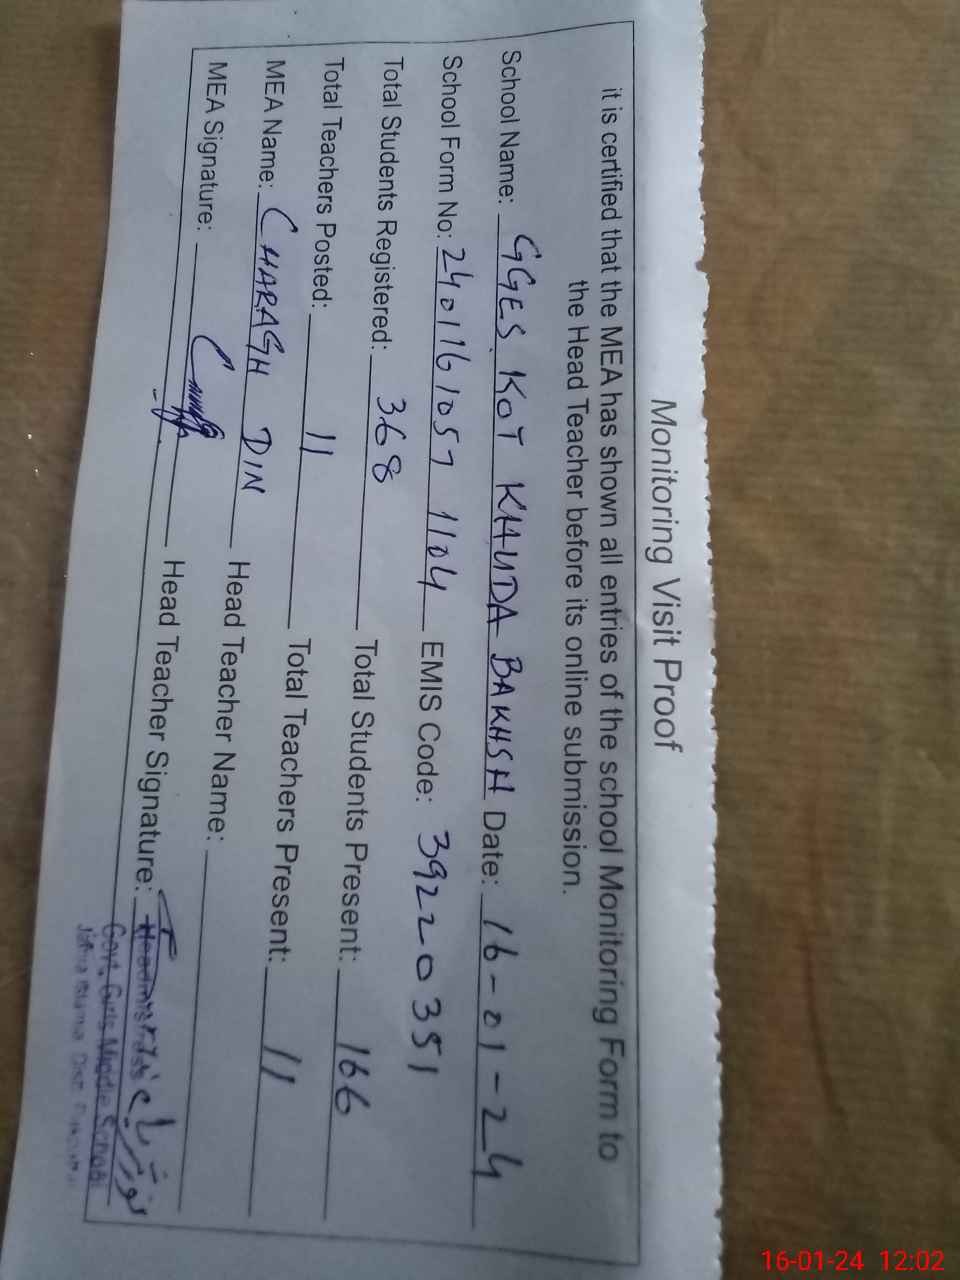 Monitoring Visit Proof
it is certified that the MEA has shown all entries of the school Monitoring Form to
the Head Teacher before its online submission.
School Name: GGES KOT KHUDA BAKHSH Date: 16-01-24
School Form No: 2401161057 1104 EMIS Code: 39220351
Total Students Registered: 368 Total Students Present: 166
Total Teachers Posted: 11 Total Teachers Present: 11
MEA Name: CHARAGH DIN Head Teacher Name:
MEA Signature: Head Teacher Signature:
Headmistress
Govt. Girls Middle School
16-01-24 12:02